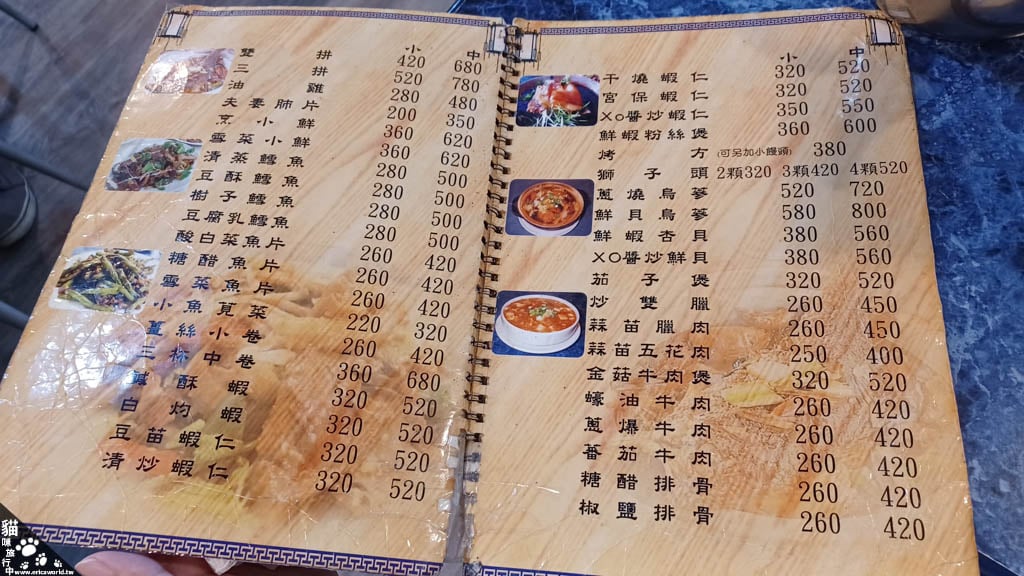 小 中
雙拼 420 680
三拼 520 780
油雞 280 480
夫妻肺片 200 350
烹小鮮 360 620
雪菜小鮮 360 620
清蒸鱈魚 280 500
豆酥鱈魚 280 500
樹子鱈魚 280 500
豆腐乳鱈魚 280 500
酸白菜魚片 260 420
糖醋魚片 260 420
雪菜魚片 260 420
小魚莧菜 220 320
薑絲小卷 260 420
三杯中卷 360 680
鹹酥蝦 320 520
白灼蝦 320 520
豆苗蝦仁 320 520
清炒蝦仁 320 520
小 中
干燒蝦仁 320 520
宮保蝦仁 320 520
XO醬炒蝦仁 350 550
鮮蝦粉絲煲 360 600
烤方 (可另加小饅頭) 380
獅子頭 2顆320 3顆420 4顆520
蔥燒烏蔘 520 720
鮮貝烏蔘 580 800
鮮蝦杏貝 380 560
XO醬炒鮮貝 380 560
茄子煲 320 520
炒雙臘 260 450
蒜苗臘肉 260 450
蒜苗五花肉 250 400
金菇牛肉煲 320 520
蠔油牛肉 260 420
蔥爆牛肉 260 420
蕃茄牛肉 260 420
糖醋排骨 260 420
椒鹽排骨 260 420
貓咪旅行中
www.ericsworld.tw